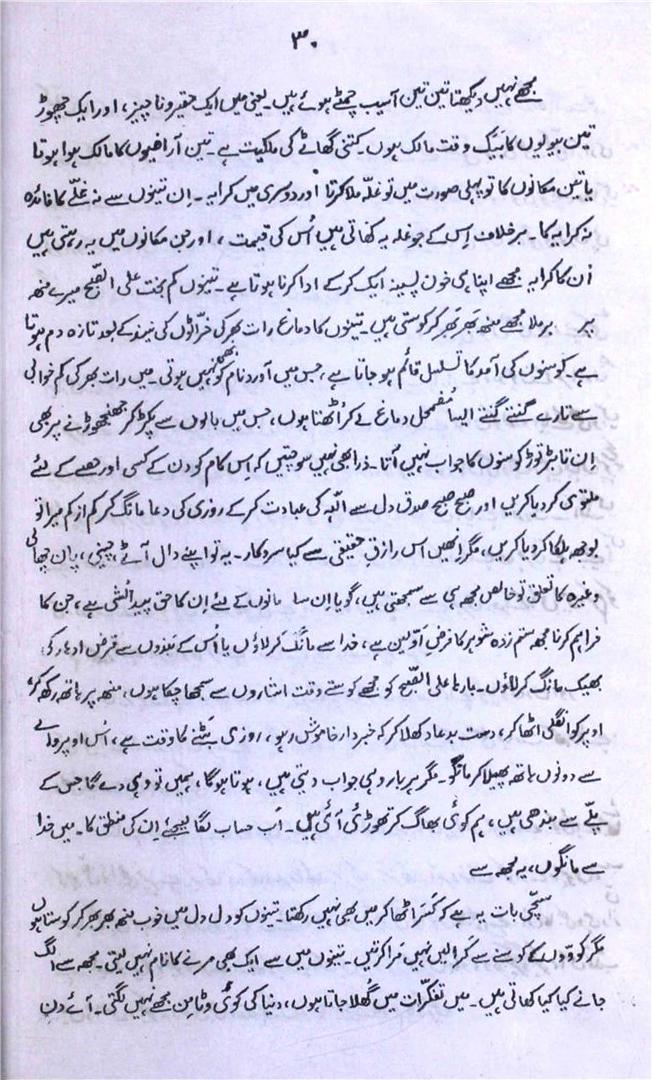 ۳۰
مجھے نہیں دیکھتا تین تین آسیب چمٹے ہوئے ہیں۔ یعنی میں ایک حقیر و ناچیز، اور ایک چھوڑ
تین بیویوں کا بیک وقت مالک ہوں۔ کتنی گھاٹے کی ملکیت ہے۔ تین آراضیوں کا مالک ہوا ہوتا
یا تین مکانوں کا تو پہلی صورت میں تو غلّہ ملا کرتا اور دوسری میں کرایہ۔ اِن تینوں سے نہ غلّے کا فائدہ
نہ کرایہ کا۔ برخلاف اِس کے جو غلہ یہ کھاتی ہیں اُس کی قیمت، اور جن مکانوں میں یہ رہتی ہیں
اُن کا کرایہ مجھے اپنا ہی خون پسینہ ایک کر کے ادا کرنا ہوتا ہے۔ تینوں کم بخت علی الصّبح میرے منھ
پر برملا مجھے منھ بھر بھر کر کوستی ہیں۔ تینوں کا دماغ رات بھر کی خرّاٹوں کی نیند کے بعد تازہ دم ہوتا
ہے۔ کوسنوں کی آمد کا تسلسل قائم ہو جاتا ہے، جس میں آورد نام کو بھی نہیں ہوتی۔ میں رات بھر کی کم خوابی
سے تارے گنتے گنتے ایسا مُضمحل دماغ لے کر اُٹھتا ہوں، جس میں بالوں سے پکڑ کر جھنجھوڑنے پر بھی
اِن تابڑ توڑ کوسنوں کا جواب نہیں آتا۔ ذرا بھی نہیں سوچتیں کہ اِس کام کو دن کے کسی اور حصے کے لئے
ملتوی کر دیا کریں اور صبح صبح صدق دل سے اللہ کی عبادت کر کے روزی کی دعا مانگ کر کم از کم میرا تو
بوجھ ہلکا کر دیا کریں، مگر انھیں اس رازقِ حقیقی سے کیا سروکار۔ یہ تو اپنے دال آٹے، چینی، پان چھالی
وغیرہ کا تعلق تو خالص مجھ ہی سے سمجھتی ہیں، گویا اِن سا مانوں کے لئے اِن کا حق پیدائشی ہے، جن کا
فراہم کرنا مجھ ستم زدہ شوہر کا فرضِ اَوّلین ہے، خدا سے مانگ کر لاؤں یا اُس کے بندوں سے قرض ادھار کی
بھیک مانگ کر لاؤں۔ بارہا علی الصّبح کو مجھے کوستے وقت اشاروں سے سمجھا چکا ہوں، منھ پر ہاتھ رکھ کر،
اوپر کو انگلی اٹھا کر، دست بدعا دکھلا کر کہ خبردار خاموش رہو، روزی بٹنے کا وقت ہے، اُس اوپر والے
سے دونوں ہاتھ پھیلا کر مانگو۔ مگر ہر بار وہی جواب دیتی ہیں، ہوتا ہوگا، ہمیں تو وہی دے گا جس کے
پلّے سے بندھی ہیں، ہم کوئی بھاگ کر تھوڑئی آئی ہیں۔ اَب حساب لگا لیجئے اِن کی منطق کا۔ میں خدا
سے مانگوں، یہ مجھ سے
سچّی بات یہ ہے کہ کَسَر اٹھا کر میں بھی نہیں رکھتا۔ تینوں کو دل دل میں خوب منھ بھر بھر کر کوستا ہوں
مگر کوّوں کے کوسنے سے گرالیں نہیں مَرا کرتیں۔ تینوں میں سے ایک بھی مرنے کا نام نہیں لیتی۔ مجھ سے الگ
جانے کیا کیا کھاتی ہیں۔ میں تفکّرات میں گُھلا جاتا ہوں، دنیا کی کوئی وٹامِن مجھے نہیں لگتی۔ آئے دن